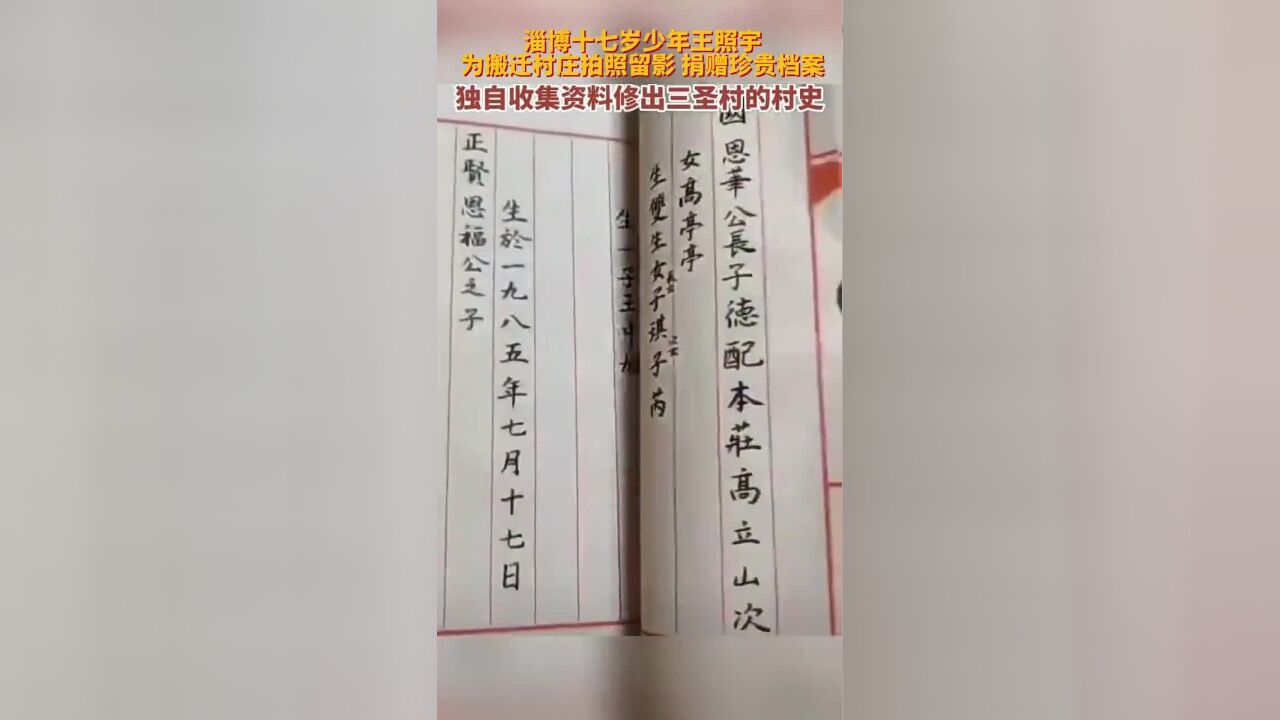 淄博十七岁少年王照宇
为搬迁村庄拍照留影 捐赠珍贵档案
独自收集资料修出三圣村的村史
恩華公長子德配本莊高立山次
女高亭亭
生雙生女子琪子芮
長女
次女
生一子王
生於一九八五年七月十七日
正賢恩福公之子